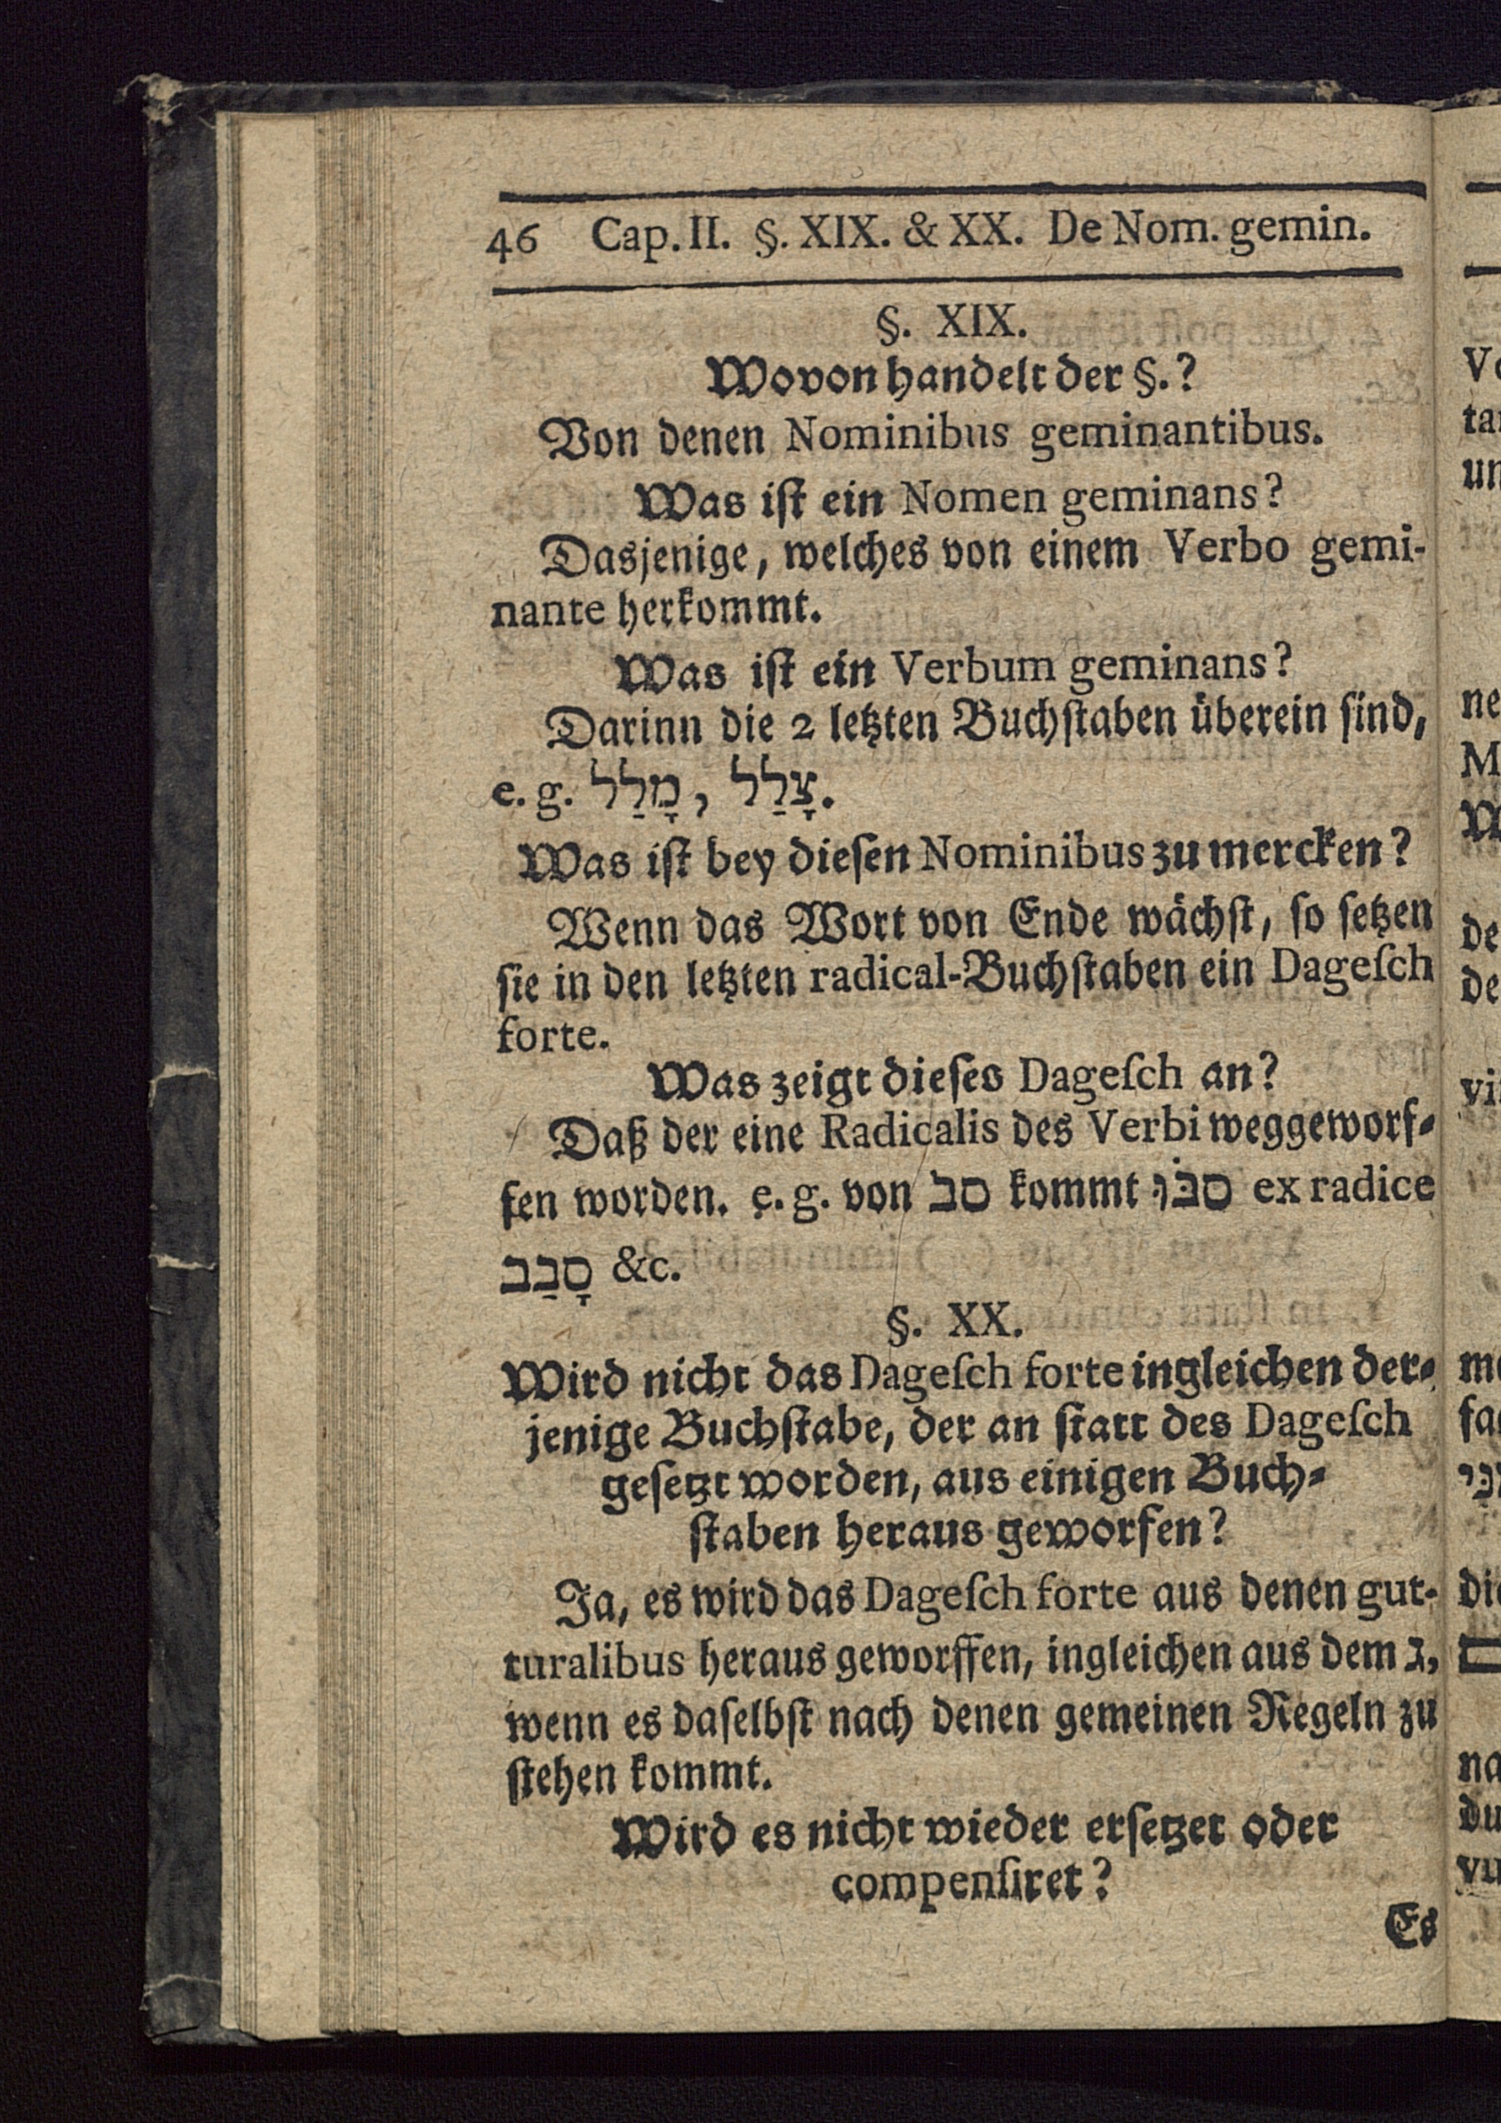 46 Cap. II. §. XIX. & XX. De Nom. gemin.
§. XIX.
Wovon handelt der §.?
Von denen Nominibus geminantibus.
Was iſt ein Nomen geminans?
Dasjenige, welches von einem Verbo gemi-
nante herkommt.
Was iſt ein Verbum geminans?
Darinn die 2 letzten Buchſtaben überein ſind,
e. g. מָלַל, צָלַל.
Was iſt bey dieſen Nominibus zu mercken?
Wenn das Wort von Ende wächſt, ſo ſetzen
ſie in den letzten radical-Buchſtaben ein Dageſch
forte.
Was zeigt dieſes Dageſch an?
Daß der eine Radicalis des Verbi weggeworf-
fen worden. e. g. von סב kommt סבּוֹ ex radice
סָבַב &c.
§. XX.
Wird nicht das Dageſch forte ingleichen der-
jenige Buchſtabe, der an ſtatt des Dageſch
geſetzt worden, aus einigen Buch-
ſtaben heraus geworfen?
Ja, es wird das Dageſch forte aus denen gut-
turalibus heraus geworffen, ingleichen aus dem ג,
wenn es daſelbſt nach denen gemeinen Regeln zu
ſtehen kommt.
Wird es nicht wieder erſetzet oder
compenſiret?
Es